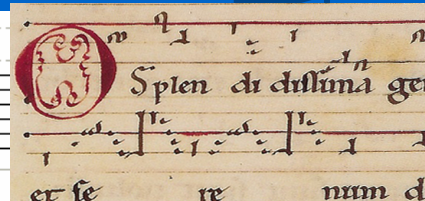 O Splen di dissima ge
et se re num d